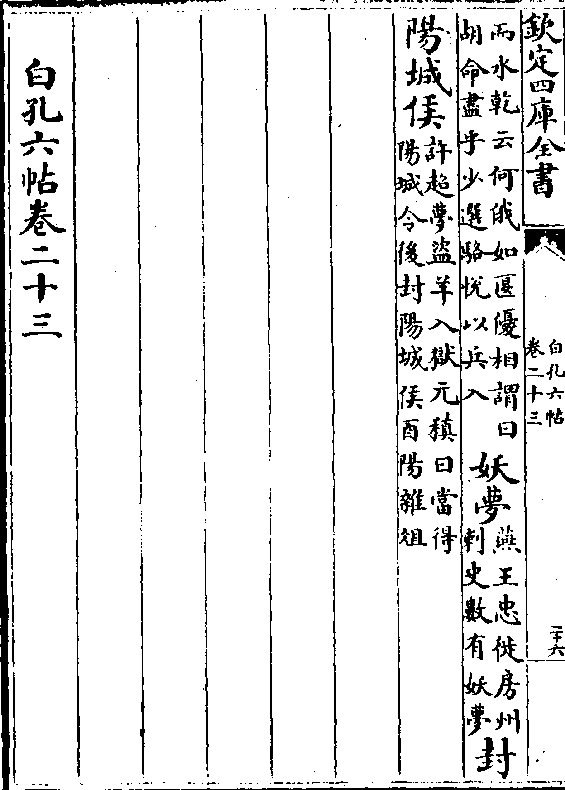 欽定四庫全書
白孔六帖
卷二十三
二十六
而水乾云何俄如匽優相謂曰
胡命盡乎少選駱悅以兵入
妖夢
燕王忠徙房州
刺史數有妖夢
封
陽城侯
許超夢盜羊入獄元稹曰當得
陽城令後封陽城侯酉陽雜俎
白孔六帖卷二十三